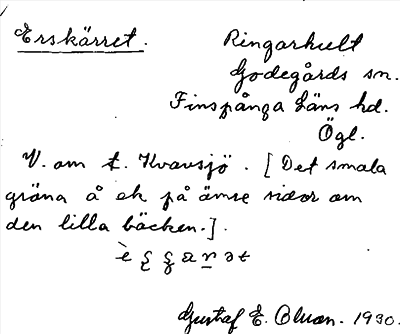 Erskärret.
Ringarhult
Godegårds sn.
Finspånga Läns hd.
Ögl.
V. om t. Kvarnsjö. [Det smala
gröna å ek på ömse sidor om
den lilla bäcken.].
Gustaf E. Bluon. 1930.